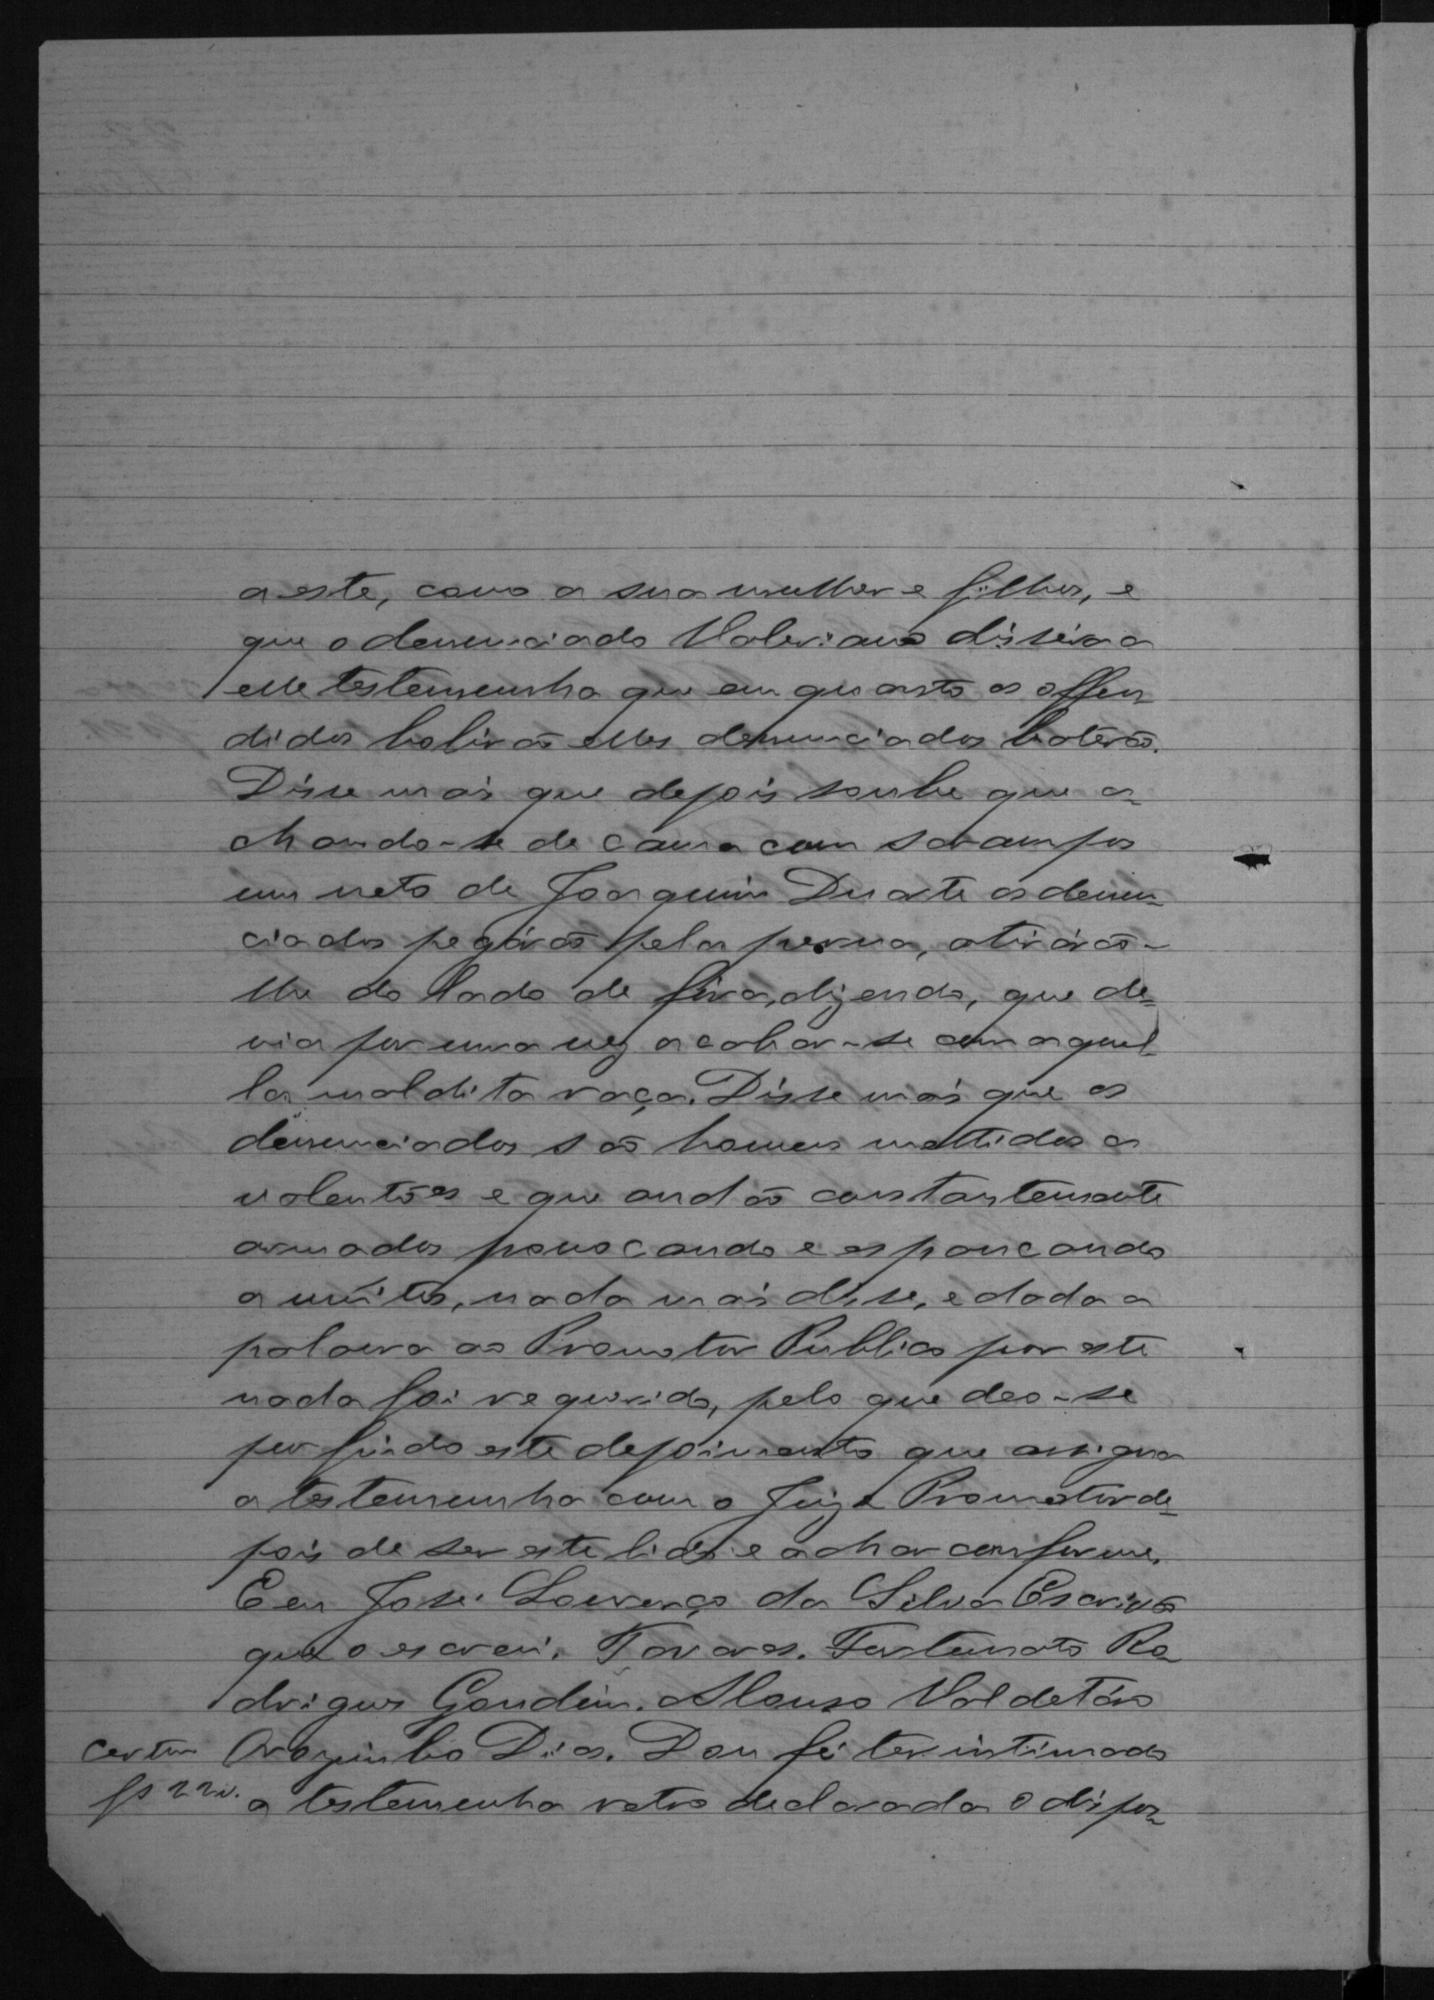 a este, como a sua mulher e filhos, e
que o denunciado Valeriano dissera a
elle testemunha que em quanto os offen-
didos bolirão elles denunciados baterão.
Disse mais que depois soube que a-
chando-se de cama com sarampos
um neto de Joaquim Duarte os denun-
ciados pegárão pela perna, atirárão-
lhe do lado de fóra, dizendo, que de-
via por uma vez acabar-se com aquel-
la maldita raça. Disse mais que os
denunciados são homens mettidos a
valentões e que andão constantemente
armados provocando e espancando
a muitos, nada mais disse, e dada a
palavra ao Promotor Publico por este
nada foi requerido, pelo que deo-se
por findo este depoimento que assigna
a testemunha com o Juiz e Promotor de-
pois de ser este lido e achar conforme.
E eu José Lourenço da Silva Escrivão
que o escrevi. Tavares. Fortunato Ro-
drigues Gondim. Alonso Valdetáro
Certm Dias. Dou fé ter intimado
fs 22v. a testemunha retro declarada o dispos-